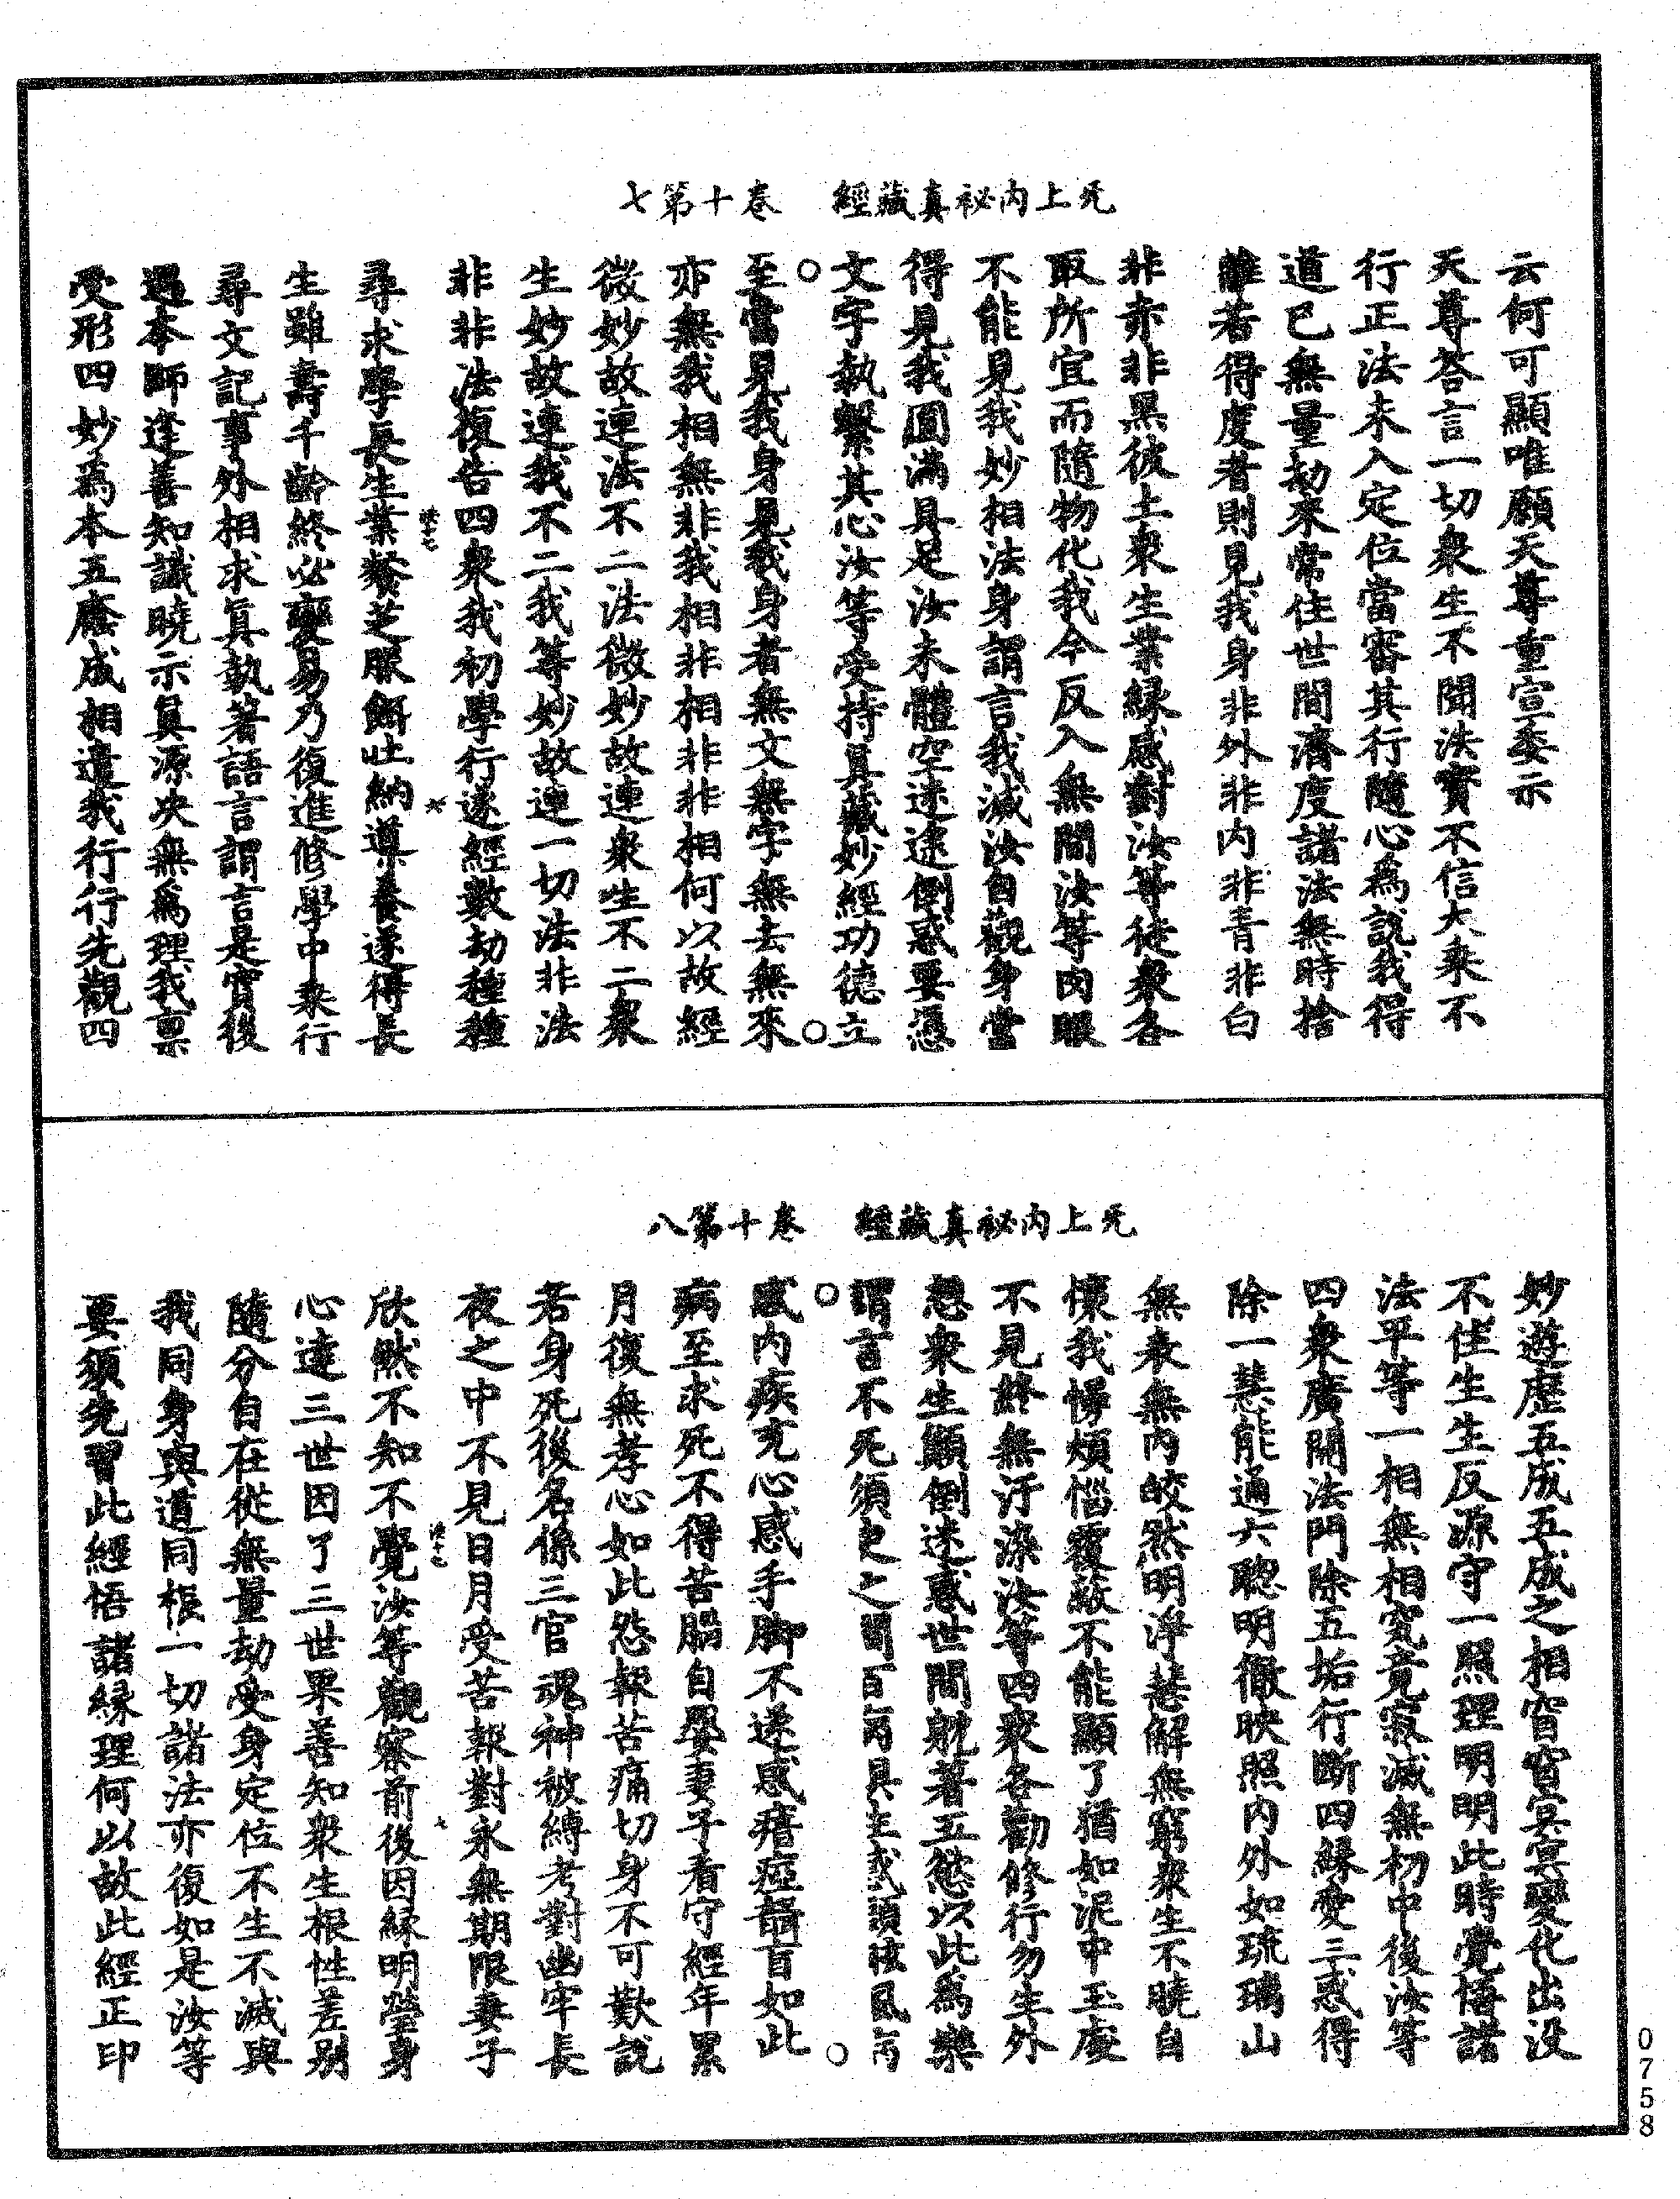 无上內祕真藏經　卷十第七
云何可顯唯願天尊重宣委示
天尊答言一切衆生不聞法實不信大乘不
行正法未入定位當審其行隨心為說我得
道已無量劫來常住世間濟度諸法無時捨
離若得度者則見我身非外非內非青非白
非赤非黑彼土衆生業緣感對汝等徒衆各
取所宜而隨物化我今反入無間汝等肉眼
不能見我妙相法身謂言我滅汝自觀身當
得見我圓滿具足汝未體空迷途倒惑要憑
文字執繫其心汝等受持真藏妙經功德立
至當見我身見我身者無文無字無去無來
亦無我相無非我相非相非非相何以故經
微妙故連法不二法微妙故連衆生不二衆
生妙故連我不二我等妙故連一切法非法
非非法復告四衆我初學行遂經數劫種種
尋求學長生業餐芝服餌吐納導養遂得長
生雖壽千齡終必變易乃復進修學中乘行
尋文記事外相求真執著語言謂言是實後
遇本師逢善知識曉示真源決無為理我稟
受形四妙為本五廕成相遣我行行先觀四
无上內祕真藏經　卷十第八
妙遊歷五成五成之相窅窅冥冥變化出沒
不住生生反源守一照理明明此時覺悟諸
法平等一相無相究竟寂滅無初中後汝等
四衆廣開法門除五垢行斷四緣愛三惑得
除一慧能通六聰明徹映照內外如琉璃山
無表無內皎然明淨慧解無窮衆生不曉自
懷我慢煩惱覆蔽不能顯了猶如泥中玉處
不見終無汙染汝等四衆各勸修行勿生外
想衆生顛倒迷惑世間躭著五慾以此為樂
謂言不死須臾之間百病具生或頭眩風病
感內疾充心感手脚不遂感瘖瘂聾盲如此
病至求死不得苦惱自嬰妻子看守經年累
月復無孝心如此怨報苦痛切身不可歎說
若身死後名係三官魂神被縛考對幽牢長
夜之中不見日月受苦報對永無期限妻子
欣然不知不覺汝等觀察前後因緣明瑩身
心達三世因了三世果善知衆生根性差別
隨分自在從無量劫受身定位不生不滅與
我同身與道同根一切諸法亦復如是汝等
要須先習此經悟諸緣理何以故此經正印
0758